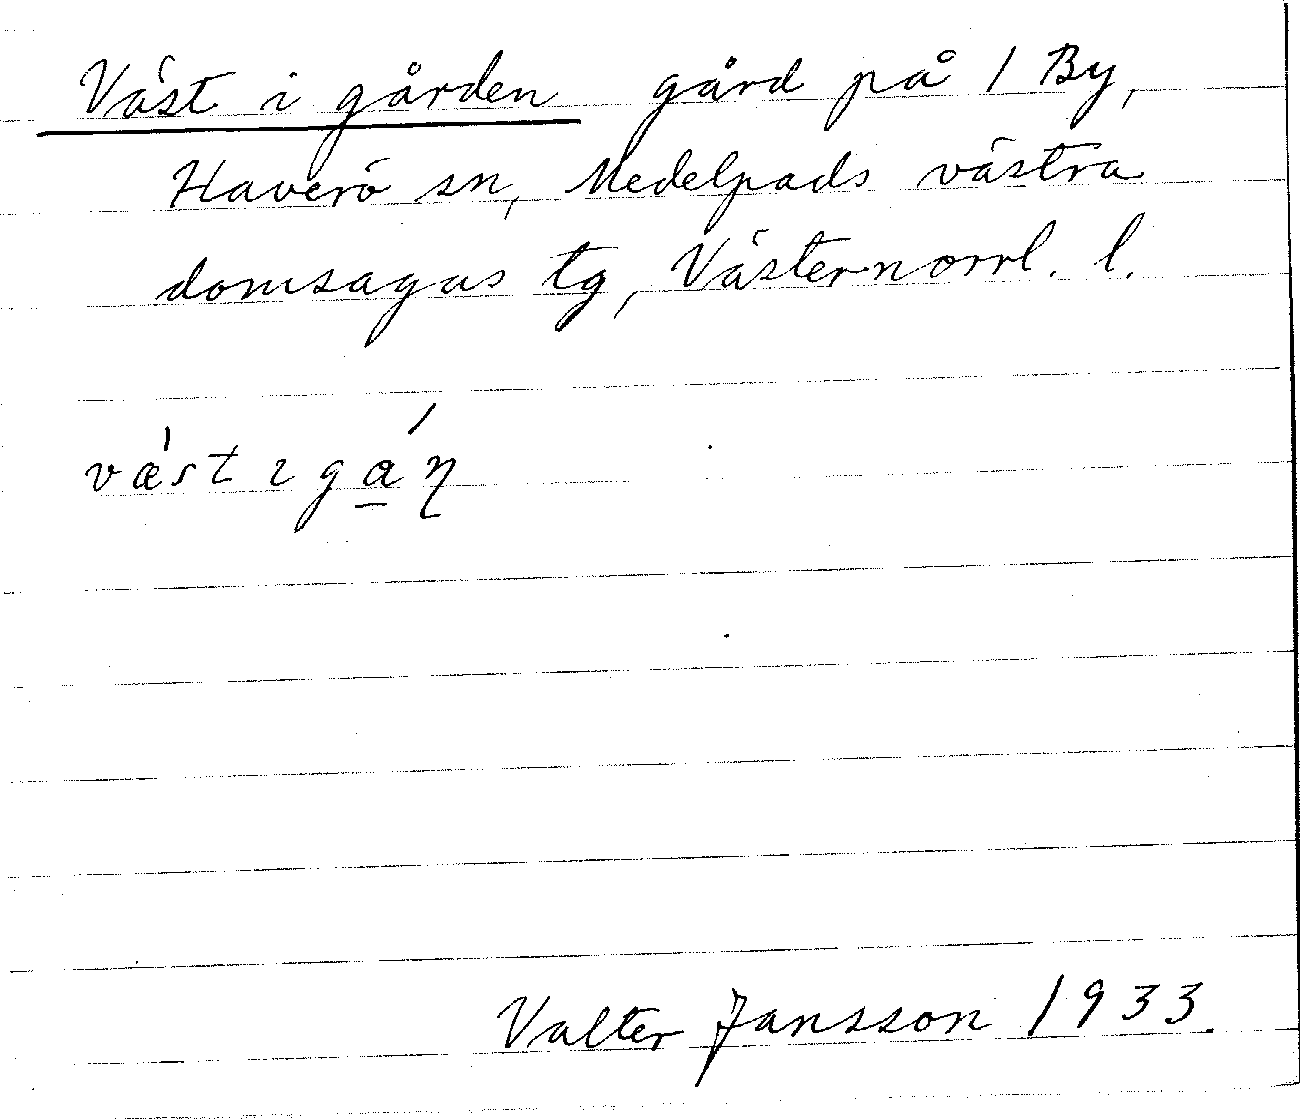 Väst i gården gård på 1 By,
Haverö sn, Medelpads västra
domsagas tg, Västernorrl. l.
vǽst ɪ gá̱ɳ
Valter Jansson 1933.